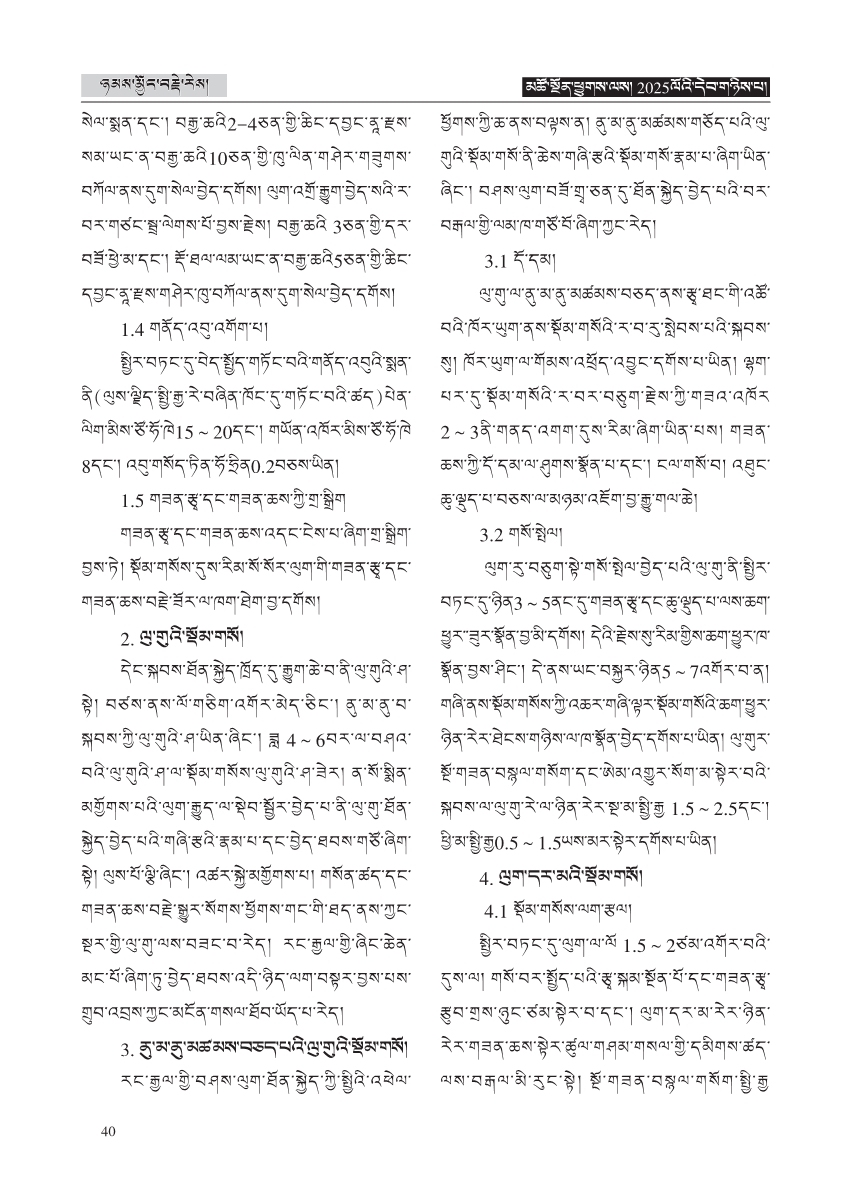 ཉམས་མྱོང་བརྗེ་རེས།
མཚོ་སྔོན་ཕྱུགས་ལས། 2025ལོའི་དེབ་གཉིས་པ།
སེལ་སྨན་དང་། བརྒྱ་ཆའི2–4ཅན་གྱི་ཆིང་དབྱང་ནཱ་རྫས་
སམ་ཡང་ན་བརྒྱ་ཆའི10ཅན་གྱི་ཁུ་ལིན་གཤེར་གཟུགས་
བཀོལ་ནས་དུག་སེལ་བྱེད་དགོས། ལུག་འགྲོ་རྒྱུག་བྱེད་སའི་ར་
བར་གཙང་སྦྲ་ལེགས་པོ་བྱས་རྗེས། བརྒྱ་ཆའི 3ཅན་གྱི་དར་
བཟོ་ཕྱེ་མ་དང་། རྡོ་ཐལ་ལམ་ཡང་ན་བརྒྱ་ཆའི5ཅན་གྱི་ཆིང་
དབྱང་ནཱ་རྫས་གཤེར་ཁུ་བཀོལ་ནས་དུག་སེལ་བྱེད་དགོས།
1.4 གནོད་འབུ་འགོག་པ།
སྤྱིར་བཏང་དུ་བེད་སྤྱོད་གཏོང་བའི་གནོད་འབུའི་སྨན་
ནི(ལུས་ལྗིད་སྤྱི་རྒྱ་རེ་བཞིན་ཁོང་དུ་གཏོང་བའི་ཚད)པེན་
ལིག་མིས་ཙོ་ཧོ་ཁེ15 ~ 20དང་། གཡོན་འཁོར་མིས་ཙོ་ཧོ་ཁེ
8དང་། འབུ་གསོད་ཏིན་ཧོ་ཧྲིན0.2བཅས་ཡིན།
1.5 གཟན་རྩྭ་དང་གཟན་ཆས་ཀྱི་གྲ་སྒྲིག
གཟན་རྩྭ་དང་གཟན་ཆས་འདང་ངེས་པ་ཞིག་གྲ་སྒྲིག་
བྱས་ཏེ། སྡོམ་གསོས་དུས་རིམ་སོ་སོར་ལུག་གི་གཟན་རྩྭ་དང་
གཟན་ཆས་བརྗེ་ཟོར་ལ་ཁག་ཐེག་བྱ་དགོས།
2. ལུ་གུའི་སྡོམ་གསོ།
དེང་སྐབས་ཐོན་སྐྱེད་ཁྲོད་དུ་རྒྱུག་ཆེ་བ་ནི་ལུ་གུའི་ཤ་
སྟེ། བཙས་ནས་ལོ་གཅིག་འགོར་མེད་ཅིང་། ནུ་མ་ནུ་བ་
སྐབས་ཀྱི་ལུ་གུའི་ཤ་ཡིན་ཞིང་། ཟླ 4 ~ 6བར་ལ་བཤའ་
བའི་ལུ་གུའི་ཤ་ལ་སྡོམ་གསོས་ལུ་གུའི་ཤ་ཟེར། ན་སོ་སྨིན་
མགྱོགས་པའི་ལུག་རྒྱུད་ལ་སྡེབ་སྦྱོར་བྱེད་པ་ནི་ལུ་གུ་ཐོན་
སྐྱེད་བྱེད་པའི་གཞི་རྩའི་རྣམ་པ་དང་བྱེད་ཐབས་གཙོ་ཞིག་
སྟེ། ལུས་པོ་ལྕི་ཞིང་། འཚར་སྐྱེ་མགྱོགས་པ། གསོན་ཚད་དང་
གཟན་ཆས་བརྗེ་སྒྱུར་སོགས་ཕྱོགས་གང་གི་ཐད་ནས་ཀྱང་
སྔར་གྱི་ལུ་གུ་ལས་བཟང་བ་རེད། རང་རྒྱལ་གྱི་ཞིང་ཆེན་
མང་པོ་ཞིག་ཏུ་བྱེད་ཐབས་འདི་ཉིད་ལག་བསྟར་བྱས་པས་
གྲུབ་འབྲས་ཀྱང་མངོན་གསལ་ཐོབ་ཡོད་པ་རེད།
3. ནུ་མ་ནུ་མཚམས་བཅད་པའི་ལུ་གུའི་སྡོམ་གསོ།
རང་རྒྱལ་གྱི་བཤས་ལུག་ཐོན་སྐྱེད་ཀྱི་སྤྱིའི་འཕེལ་
ཕྱོགས་ཀྱི་ཆ་ནས་བལྟས་ན། ནུ་མ་ནུ་མཚམས་གཅོད་པའི་ལུ་
གུའི་སྡོམ་གསོ་ནི་ཆེས་གཞི་རྩའི་སྡོམ་གསོ་རྣམ་པ་ཞིག་ཡིན་
ཞིང་། བཤས་ལུག་བཟོ་གྲྭ་ཅན་དུ་ཐོན་སྐྱེད་བྱེད་པའི་བར་
བརྒལ་གྱི་ལམ་ཁ་གཙོ་བོ་ཞིག་ཀྱང་རེད།
3.1 དོ་དམ།
ལུ་གུ་ལ་ནུ་མ་ནུ་མཚམས་བཅད་ནས་རྩྭ་ཐང་གི་འཚོ་
བའི་ཁོར་ཡུག་ནས་སྡོམ་གསོའི་ར་བ་རུ་སླེབས་པའི་སྐབས་
སུ། ཁོར་ཡུག་ལ་གོམས་འཕྲོད་འབྱུང་དགོས་པ་ཡིན། ལྷག་
པར་དུ་སྡོམ་གསོའི་ར་བར་བཅུག་རྗེས་ཀྱི་གཟའ་འཁོར
2 ~ 3ནི་གནད་འགག་དུས་རིམ་ཞིག་ཡིན་པས། གཟན་
ཆས་ཀྱི་དོ་དམ་ལ་ཤུགས་སྣོན་པ་དང་། ངལ་གསོ་བ། འཐུང་
ཆུ་ལྡུད་པ་བཅས་ལ་མཉམ་འཇོག་བྱ་རྒྱུ་གལ་ཆེ།
3.2 གསོ་སྤེལ།
ལུག་རུ་བཅུག་སྟེ་གསོ་སྤེལ་བྱེད་པའི་ལུ་གུ་ནི་སྤྱིར་
བཏང་དུ་ཉིན3 ~ 5ནང་དུ་གཟན་རྩྭ་དང་ཆུ་ལྡུད་པ་ལས་ཆག་
ཕྱུར་ཟུར་སྣོན་བྱ་མི་དགོས། དེའི་རྗེས་སུ་རིམ་གྱིས་ཆག་ཕྱུར་ཁ་
སྣོན་བྱས་ཤིང་། དེ་ནས་ཡང་བསྐྱར་ཉིན5 ~ 7འགོར་བ་ན།
གཞི་ནས་སྡོམ་གསོས་ཀྱི་འཆར་གཞི་ལྟར་སྡོམ་གསོའི་ཆག་ཕྱུར་
ཉིན་རེར་ཐེངས་གཉིས་ལ་ཁ་སྣོན་བྱེད་དགོས་པ་ཡིན། ལུ་གུར་
སྔོ་གཟན་བསྙལ་གསོག་དང་ཨེམ་འགྱུར་སོག་མ་སྟེར་བའི་
སྐབས་ལ་ལུ་གུ་རེ་ལ་ཉིན་རེར་སྔ་མ་སྤྱི་རྒྱ 1.5 ~ 2.5དང་།
ཕྱི་མ་སྤྱི་རྒྱ0.5 ~ 1.5ཡས་མར་སྟེར་དགོས་པ་ཡིན།
4. ལུག་དར་མའི་སྡོམ་གསོ།
4.1 སྡོམ་གསོས་ལག་རྩལ།
སྤྱིར་བཏང་དུ་ལུག་ལ་ལོ 1.5 ~ 2ཙམ་འགོར་བའི་
དུས་ལ། གསོ་བར་སྤྱོད་པའི་རྩྭ་སྐམ་སྔོན་པོ་དང་གཟན་རྩྭ་
རྩུབ་གྲས་ཉུང་ཙམ་སྟེར་བ་དང་། ལུག་དར་མ་རེར་ཉིན་
རེར་གཟན་ཆས་སྟེར་ཚུལ་གཤམ་གསལ་གྱི་དམིགས་ཚད་
ལས་བརྒལ་མི་རུང་སྟེ། སྔོ་གཟན་བསྙལ་གསོག་སྤྱི་རྒྱ
40